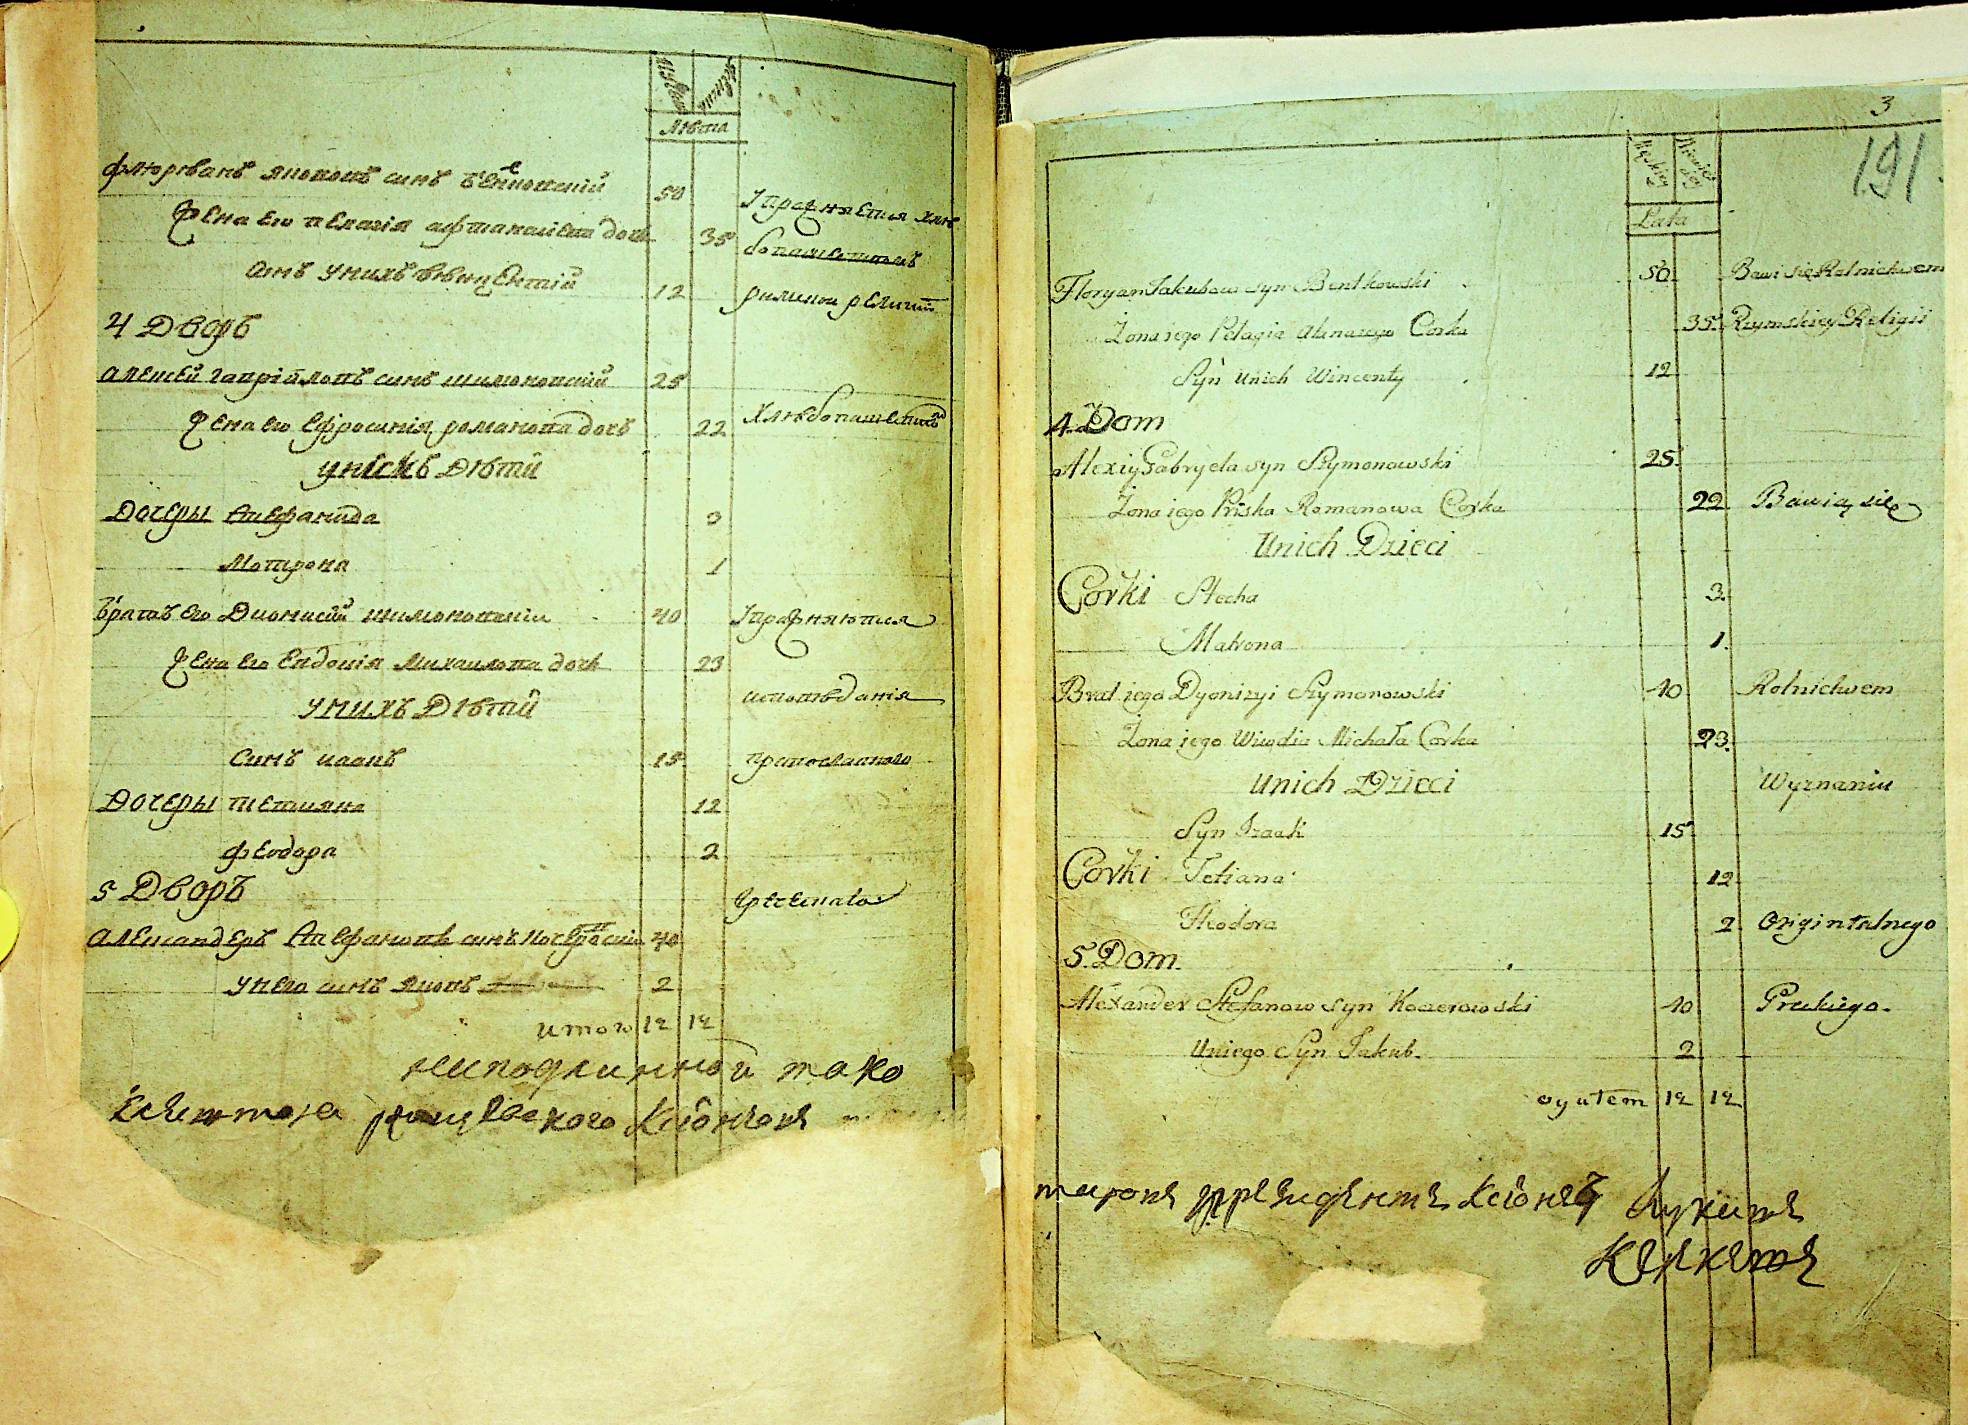 Лѣта
Флюріванъ Якововъ синъ Бентковскій 50
Жена его Пелагія дочь 35 упражняется хлѣ
бопашествомъ
синъ унихъ Вѣнцентій 12 римской религіи
4 Дворъ
Алексей Гаврійловъ синъ Шимоновскій 25
Жена его Ефросинія романова дочь 22 Хлѣбопашествомъ
унихъ Дѣтй
Дочеры Стефанида 3
Мотрона 1
Братъ его Дионисій Шимоновскій 40 упражняются
Жена его Евдокія Михаилова дочь 23
унихъ Дѣтй исповѣданія
Синъ исаакъ 15 православного
Дочеры Тетияна 12
Феодора 2
5 Дворъ греческаго
Александеръ Стефановъ синъ 40
унего синъ Яковъ 2
итого 12 12
3
191.
Męskiey
Lata
Floryan Jakubow syn Bentkowski 50 Bawi się Rolnictwem
Żona jego Pelagia Corka 35 Rzymskiey Religii
Syn unich Wincenty 12
4. Dom
Alexiy Gabryela syn Szymonowski 25.
Żona jego Priska Romanowa Corka 22 Bawią się
Unich Dzieci
Corki Stecha 3.
Matrona 1.
Brat jego Dyonizyi Szymonowski 40 Rolnictwem
Żona jego Michała Corka 23.
Unich Dzieci Wyznaniu
Syn Izaak 15
Corki Tetiana 12
Theodora 2 Orgintalnego
5. Dom.
Alexander Stefanow syn Kocerowski 40 Grekiego.
Uniego Syn Jakub. 2
ogułem 12 12